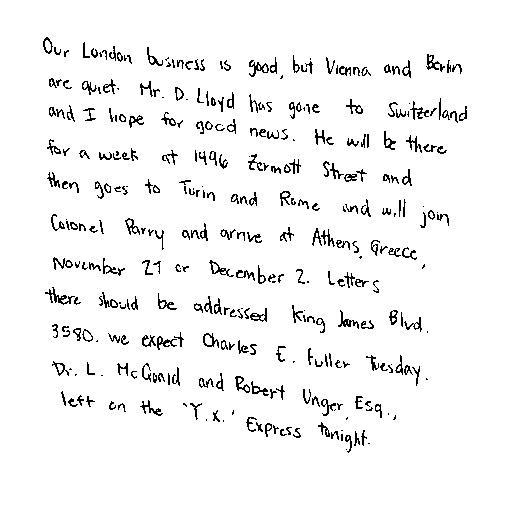 Our London business is good, but Vienna and Berlin
are quiet. Mr. D. Lloyd has gone to Switzerland
and I hope for good news. He will be there
for a week at 1496 Zermott Street and
then goes to Turin and Rome and will join
Colonel Parry and arrive at Athens, Greece,
November 27 or December 2. Letters
there should be addressed King James Blvd.
3580. We expect Charles E. Fuller Tuesday.
Dr. L. McQuaid and Robert Unger, Esq.,
left on the 'Y.X.' Express tonight.